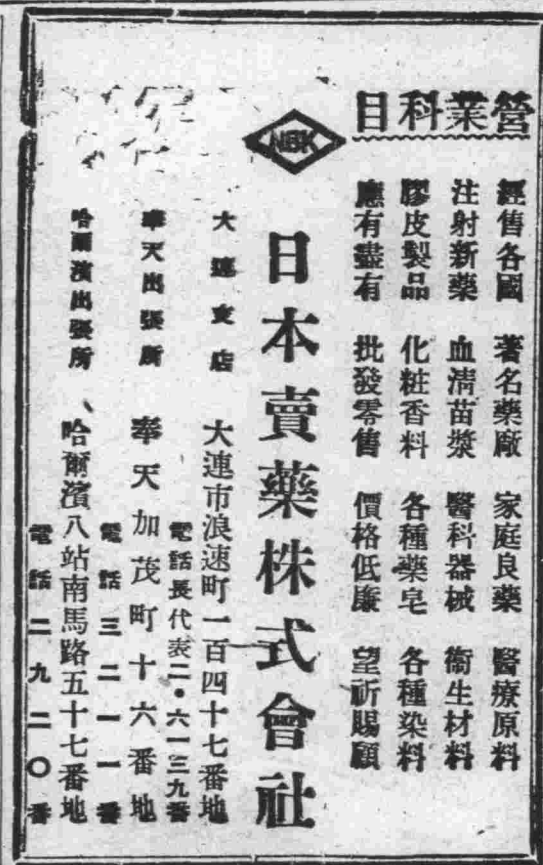 營業科目
經售各國 著名藥廠 家庭良藥 醫療原料
注射新藥 血清苗漿 醫科器械 衞生材料
膠皮製品 化粧香料 各種藥皂 各種染料
應有盡有 批發零售 價格低廉 望祈賜顧
日本賣藥株式會社
大連支店 大連市浪速町一百四十七番地
電話長代表二・六一三九番
奉天出張所 奉天加茂町十六番地
電話三二一一番
哈爾濱出張所 哈爾濱八站南馬路五十七番地
電話二九二〇番